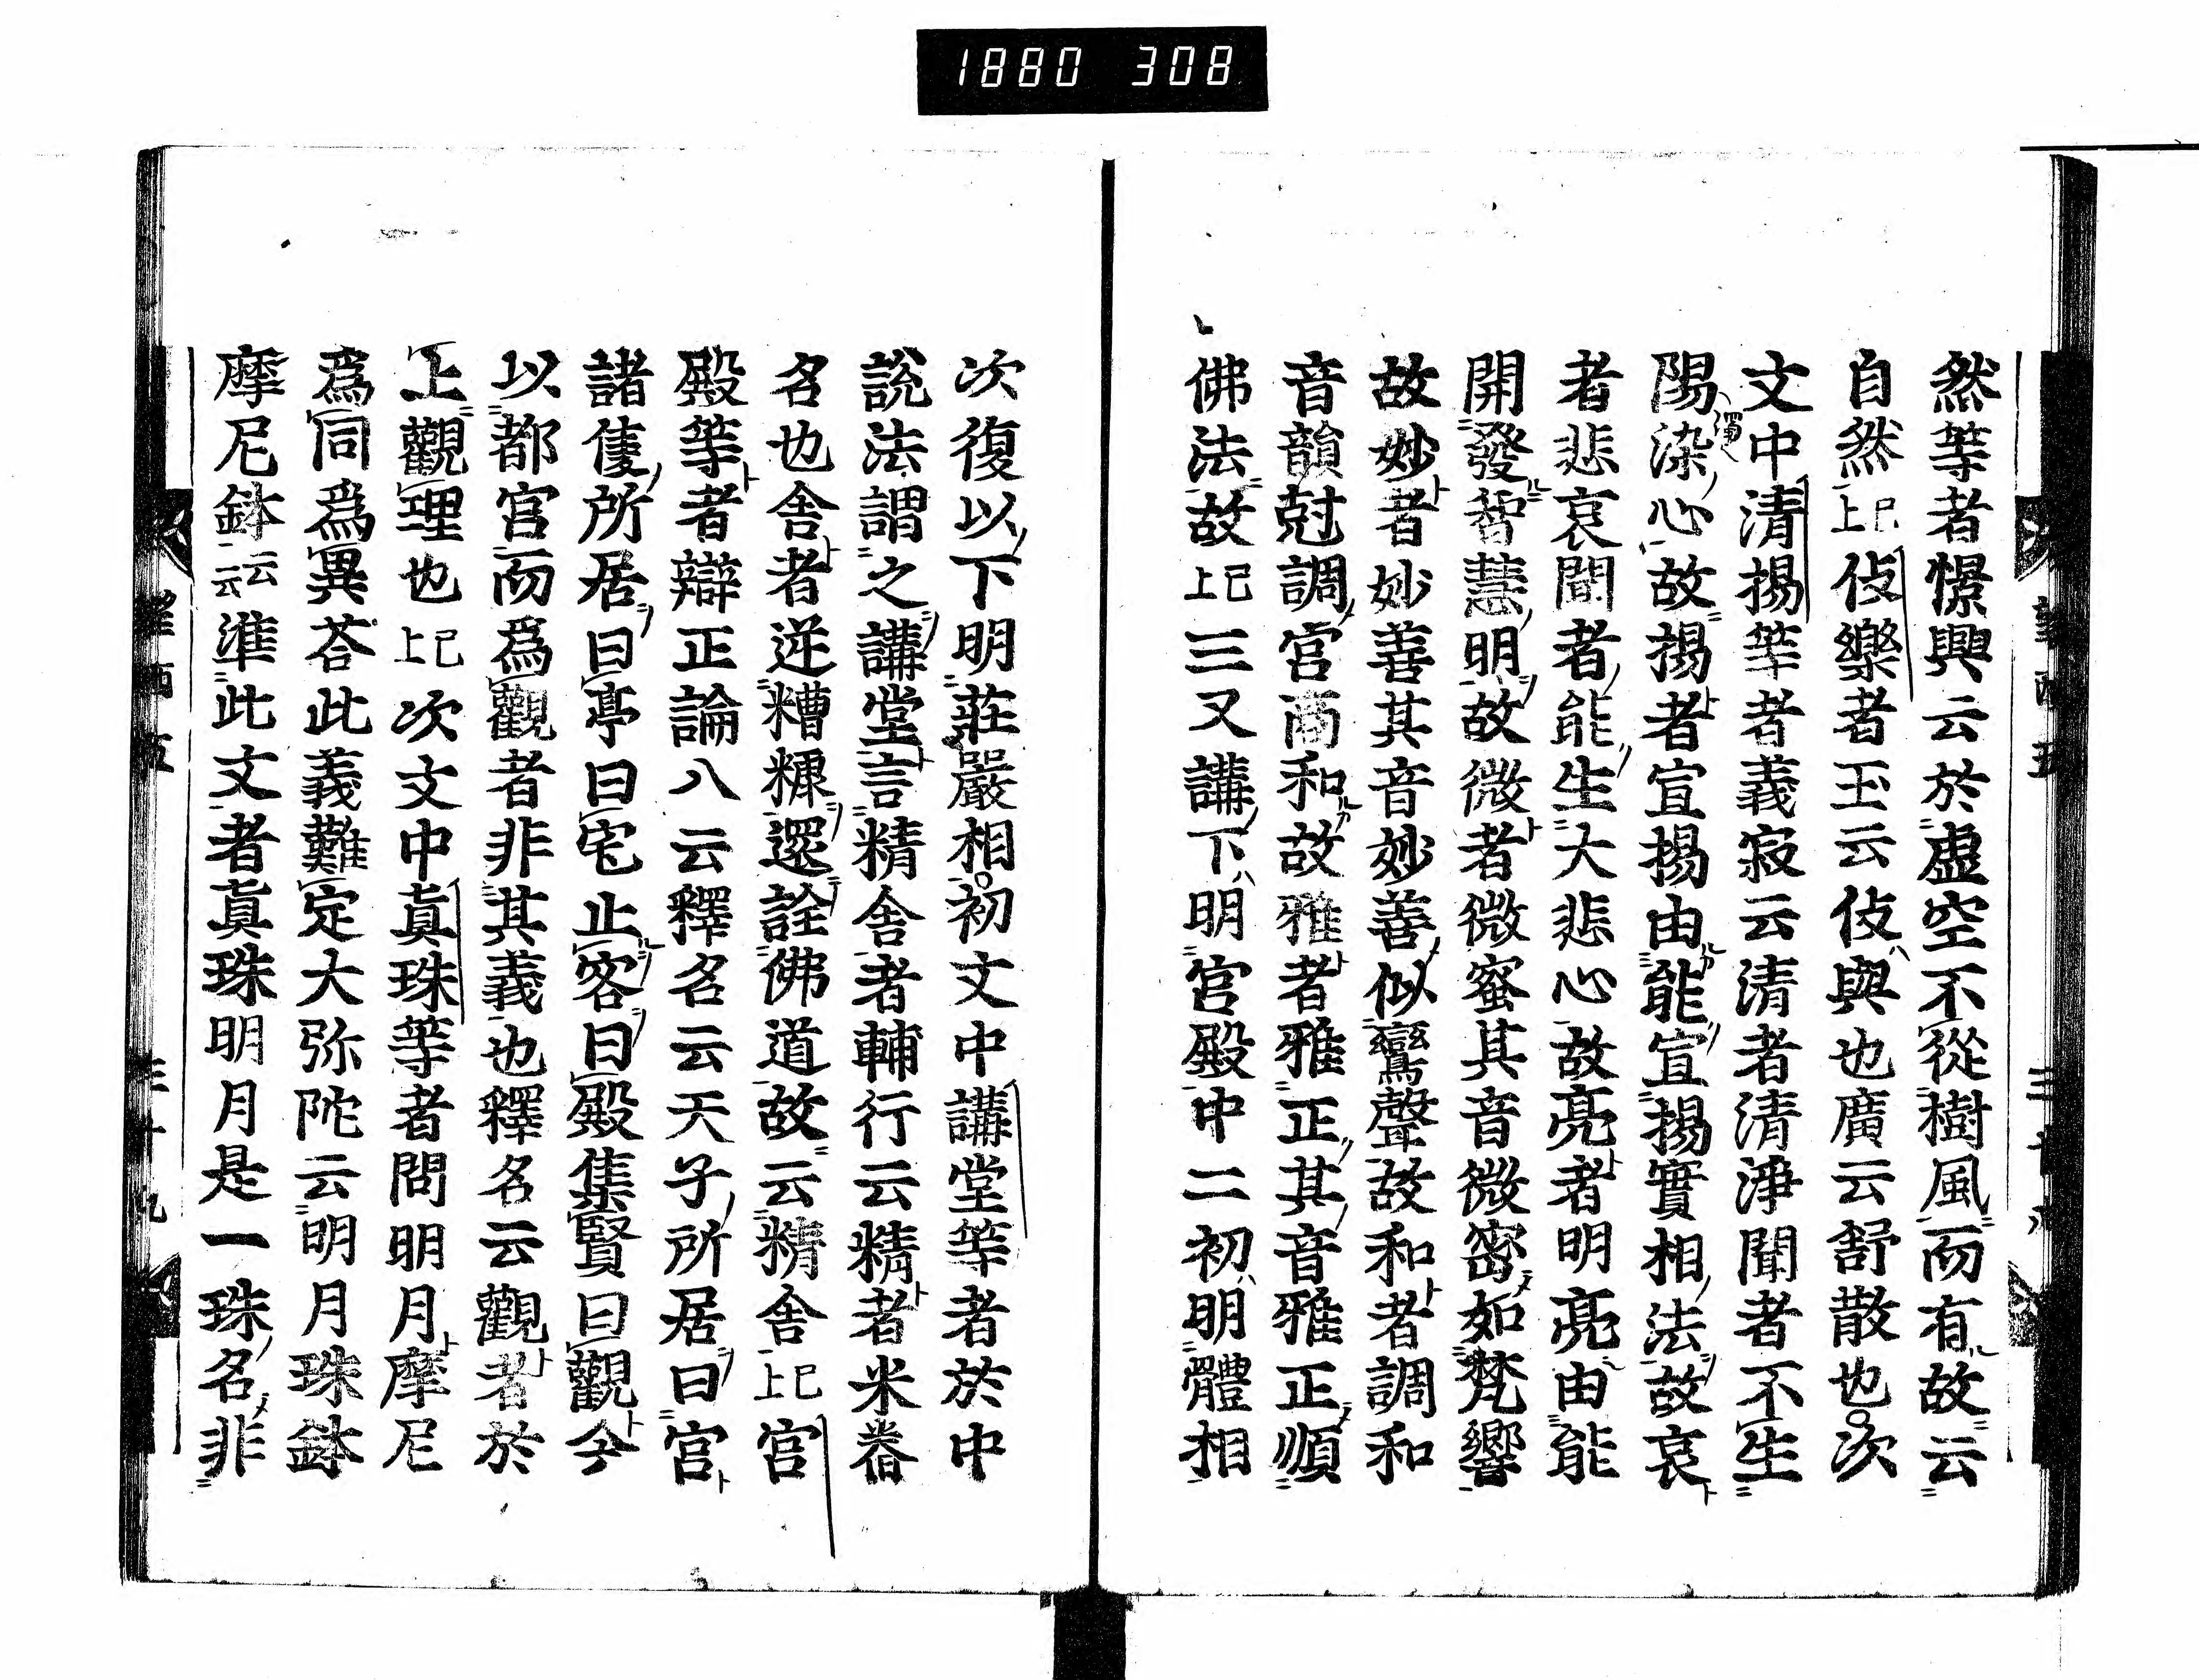 1880 308
然等者憬興云於虛空不從樹風而有故云
自然已上伎樂者玉云伎與也廣云舒散也次
文中清揚等者義寂云清者清淨聞者不生
陽染心故揚者宣揚由能宣揚實相法故哀
濁
者悲哀聞者能生大悲心故亮者明亮由能
開發智慧明故微者微蜜其音微密如梵響
故妙者妙善其音妙善似鸞聲故和者調和
音韻尅調宮商和故雅者雅正其音雅正順
佛法故已上三又講下明宮殿中二初明體相
次復以下明莊嚴相初文中講堂等者於中
說法謂之講堂言精舍者輔行云精者米眷
名也舍者逆糟糠還詮佛道故云精舍已上宮
殿等者辯正論八云釋名云天子所居曰宮
諸隻所居曰亭曰宅止客曰殿集賢曰觀今
以都官而爲觀者非其義也釋名云觀者於
上觀理也已上次文中眞珠等者問明月摩尼
爲同爲異荅此義難定大弥陀云明月珠鉢
摩尼鉢云云準此文者眞珠明月是一珠名非